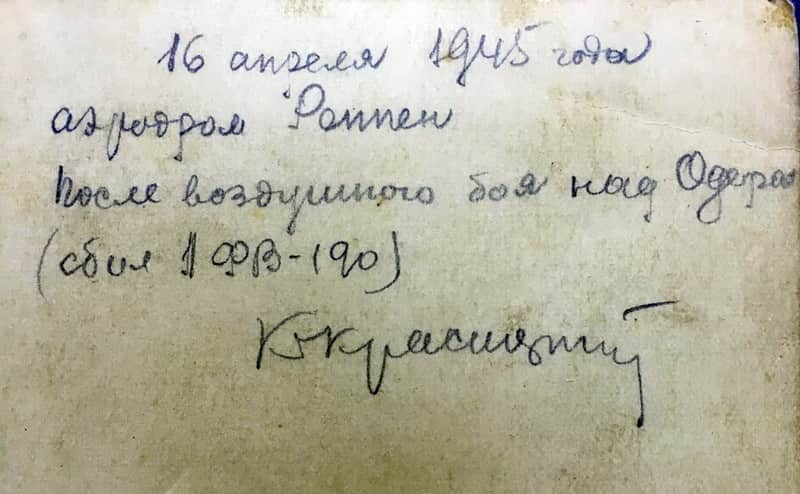 16 апреля 1945 года
аэродром Реппен
После воздушного боя над Одером
(сбил 1 ФВ-190)